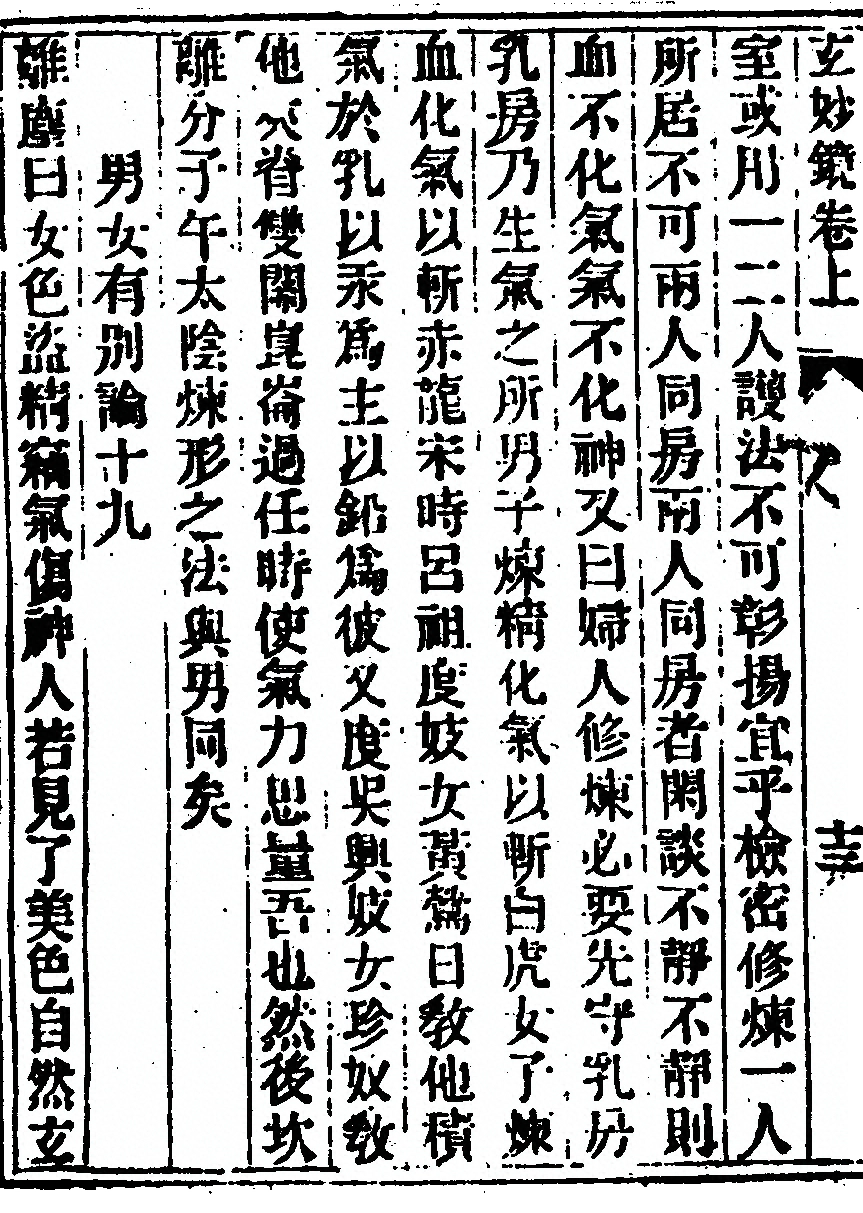 玄妙鏡卷上
十三
室或用一二人護法不可彰揚宜乎檢密修煉一人
所居不可兩人同房兩人同房者閑談不靜不靜則
血不化氣氣不化神又曰婦人修煉必要先守乳房
乳房乃生氣之所男子煉精化氣以斬白虎女子煉
血化氣以斬赤龍宋時呂祖度妓女黃鶯曰教他積
氣於乳以汞爲主以鉛爲彼又度吳興妓女珍奴教
他 脊雙關崑崙過任時使氣力思量吾也然後坎
離分子午太陰煉形之法與男同矣
男女有别論十九
離塵曰女色盜精竊氣傷神人若見了美色自然玄